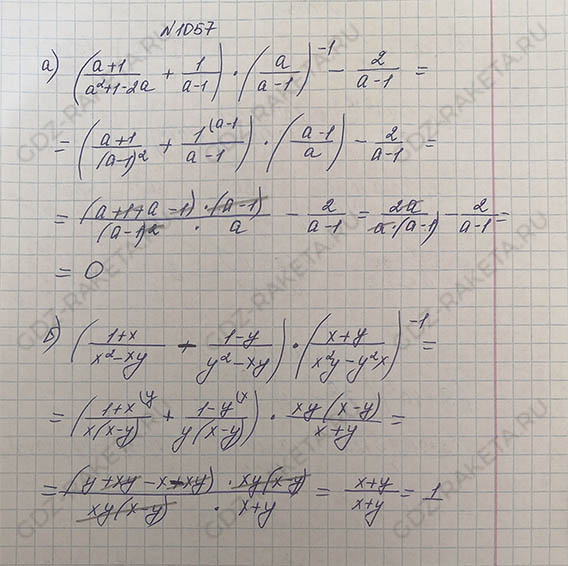 N1057
а) ((a+1)/(a²+1-2a) + 1/(a-1)) · (a/(a-1))⁻¹ - 2/(a-1) =
= ((a+1)/(a-1)² + 1(a-1/(a-1)) · ((a-1)/a) - 2/(a-1) =
= (a+1+a-1)·(a-1)/((a-1)² · a) - 2/(a-1) = 2a/(a·(a-1)) - 2/(a-1) =
= 0
б) ((1+x)/(x²-xy) - (1-y)/(y²-xy)) · ((x+y)/(x²y-y²x))⁻¹ =
= (1+x(y/(x(x-y)) + 1-y(x/(y(x-y))) · xy(x-y)/(x+y) =
= (y+xy-x+xy) · xy(x-y)/(xy(x-y) · x+y) = (x+y)/(x+y) = 1
GDZ-RAKETA.RU